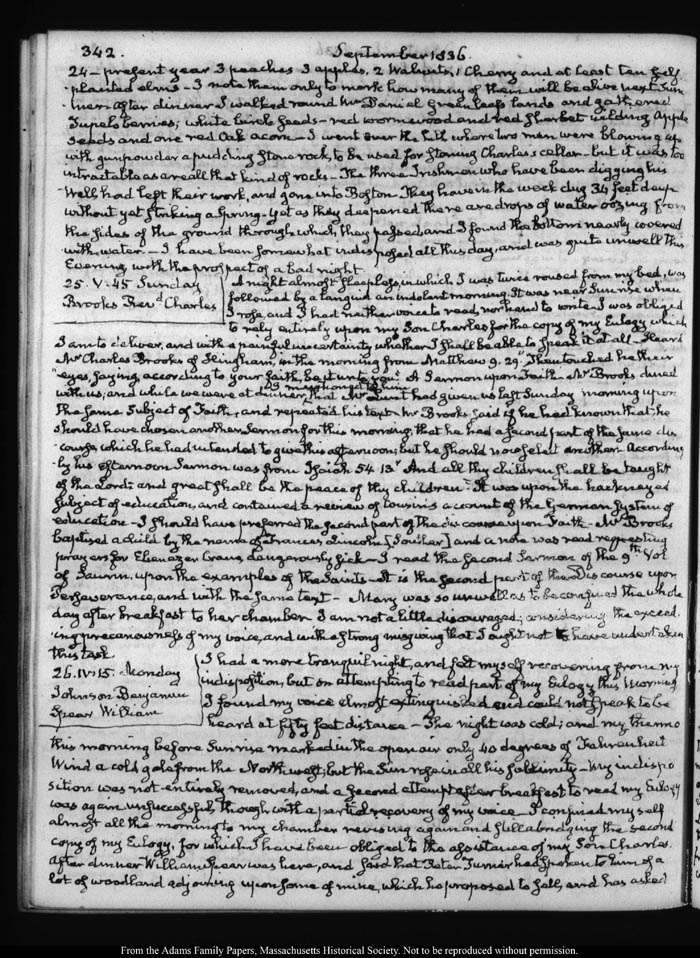 342.
September 1836.
24 – present year 3 peaches 3 apples, 2 Walnuts, 1 Cherry and at least ten self
planted elms – I note them only to mark how many of them will be alive next Sum-
mer. After dinner I walked round Mr Daniel Greenleafs lands and gathered
Tupelo berries; white birch seeds – red wormwood and red sherbet wilding apple
seeds and one red Oak acorn – I went over the hill where two men were blowing up
with gunpowder a pudding stone rock, to be used for stoning Charles's cellar – but it was too
intractable as are all that kind of rocks – The three Irishmen who have been digging his
Well had left their work, and gone into Boston. They have in the week dug 34 feet deep
without yet striking a Spring – yet as they deepened there are drops of water oozing from
the sides of the ground through which they passed, and I found the bottom nearly covered
with water – I have been somewhat indisposed all this day, and was quite unwell this
Evening with the prospect of a bad night
25. V. 45. Sunday
Brooks Revd Charles
A night almost sleepless, in which I was twice roused from my bed, was
followed by a languid an indolent morning. It was near Sunrise when
I rose, and I had neither voice to read, nor hand to write – I was obliged
to rely entirely upon my Son Charles for the copy of my Eulogy which
I am to deliver, and with a painful uncertainty whether I shall be able to speak it at all – Heard
Mr Charles Brooks of Hingham, in the morning from Matthew 9. 29. "Then touched he their
"eyes, saying, according to your faith, be it unto you." A Sermon upon Faith – Mr Brooks dined
with us; and while we were at dinner, I mentioned to him that Mr Lunt had given us last Sunday morning upon
the same subject of Faith, and repeated his text – Mr Brooks said if he had known that he
should have chosen another Sermon for this morning, that he had a second part of the same dis-
course which he had intended to give this afternoon; but he should now select another. According-
ly his afternoon Sermon was from Isaiah 54. 13. "And all thy children shall be taught
of the Lord: and great shall be the peace of thy children": It was upon the hackneyed
subject of education, and contained a review of Cousin's account of the German System of
education – I should have preferred the second part of the discourse upon Faith – Mr Brooks
baptised a child by the name of Frances Lincoln [Souther] and a note was read requesting
prayers for Ebenezer Crane dangerously sick – I read the second Sermon of the 9th Vol
of Saurin, upon the examples of the Saints – It is the second part of the Discourse upon
Perseverance, and with the same text – Mary was so unwell as to be confined the whole
day after breakfast to her chamber. I am not a little discouraged; considering the exceed-
ing precariousness of my voice, and with a strong misgiving that I ought not to have undertaken
this task
26. IV. 15. Monday
Johnson Benjamin
Spear William
I had a more tranquil night, and felt myself recovering from my
indisposition, but on attempting to read part of my Eulogy this Morning
I found my voice almost extinguished and could not speak to be
heard at fifty feet distance – The night was cold; and my thermo
this morning before Sunrise marked in the open air only 40 degrees of Fahrenheit
Wind a cold gale from the North west; but the Sun rose in all his sublimity – My indispo-
sition was not entirely removed, and a second attempt after breakfast to read my Eulogy
was again unsuccessful, though with a partial recovery of my voice. I confined myself
almost all the morning to my chamber revising again and still abridging the second
copy of my Eulogy, for which I have been obliged to the assistance of my Son Charles.
After dinner William Spear was here, and said that Peter Turner had spoken to him of a
lot of woodland adjoining upon some of mine, which he proposed to sell, and has asked
From the Adams Family Papers, Massachusetts Historical Society. Not to be reproduced without permission.